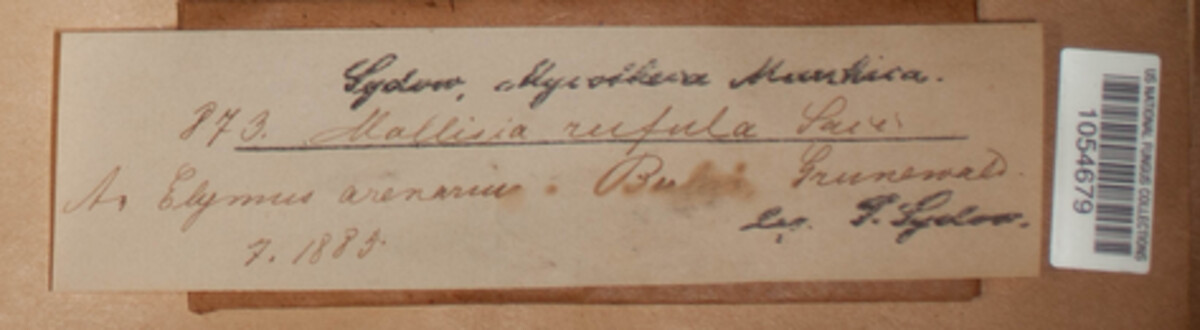 Sydow, Mycotheca Marchica.
873. Mollisia rufula Sacc.
An Elymus arenarius. Grunewald.
leg. P. Sydow.
7. 1885
US NATIONAL FUNGUS COLLECTIONS
1054679